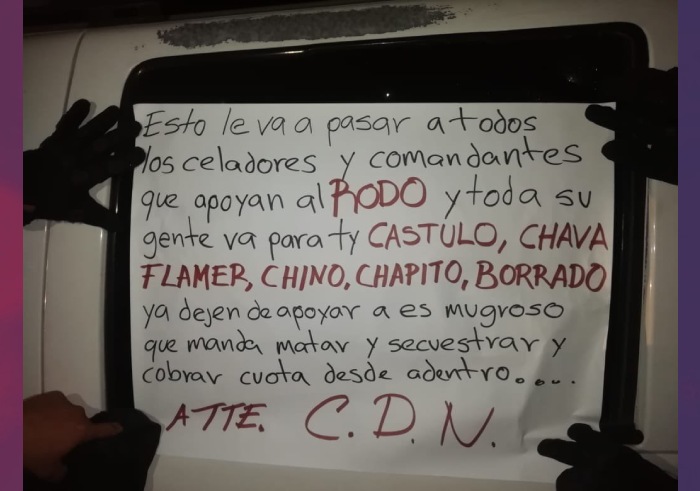 Esto le va a pasar a todos
los celadores y comandantes
que apoyan al RODO y toda su
gente va para ty CASTULO, CHAVA
FLAMER, CHINO, CHAPITO, BORRADO
ya dejen de apoyar a es mugroso
que manda matar y secuestrar y
cobrar cuota desde adentro.....
ATTE. C.D.N.